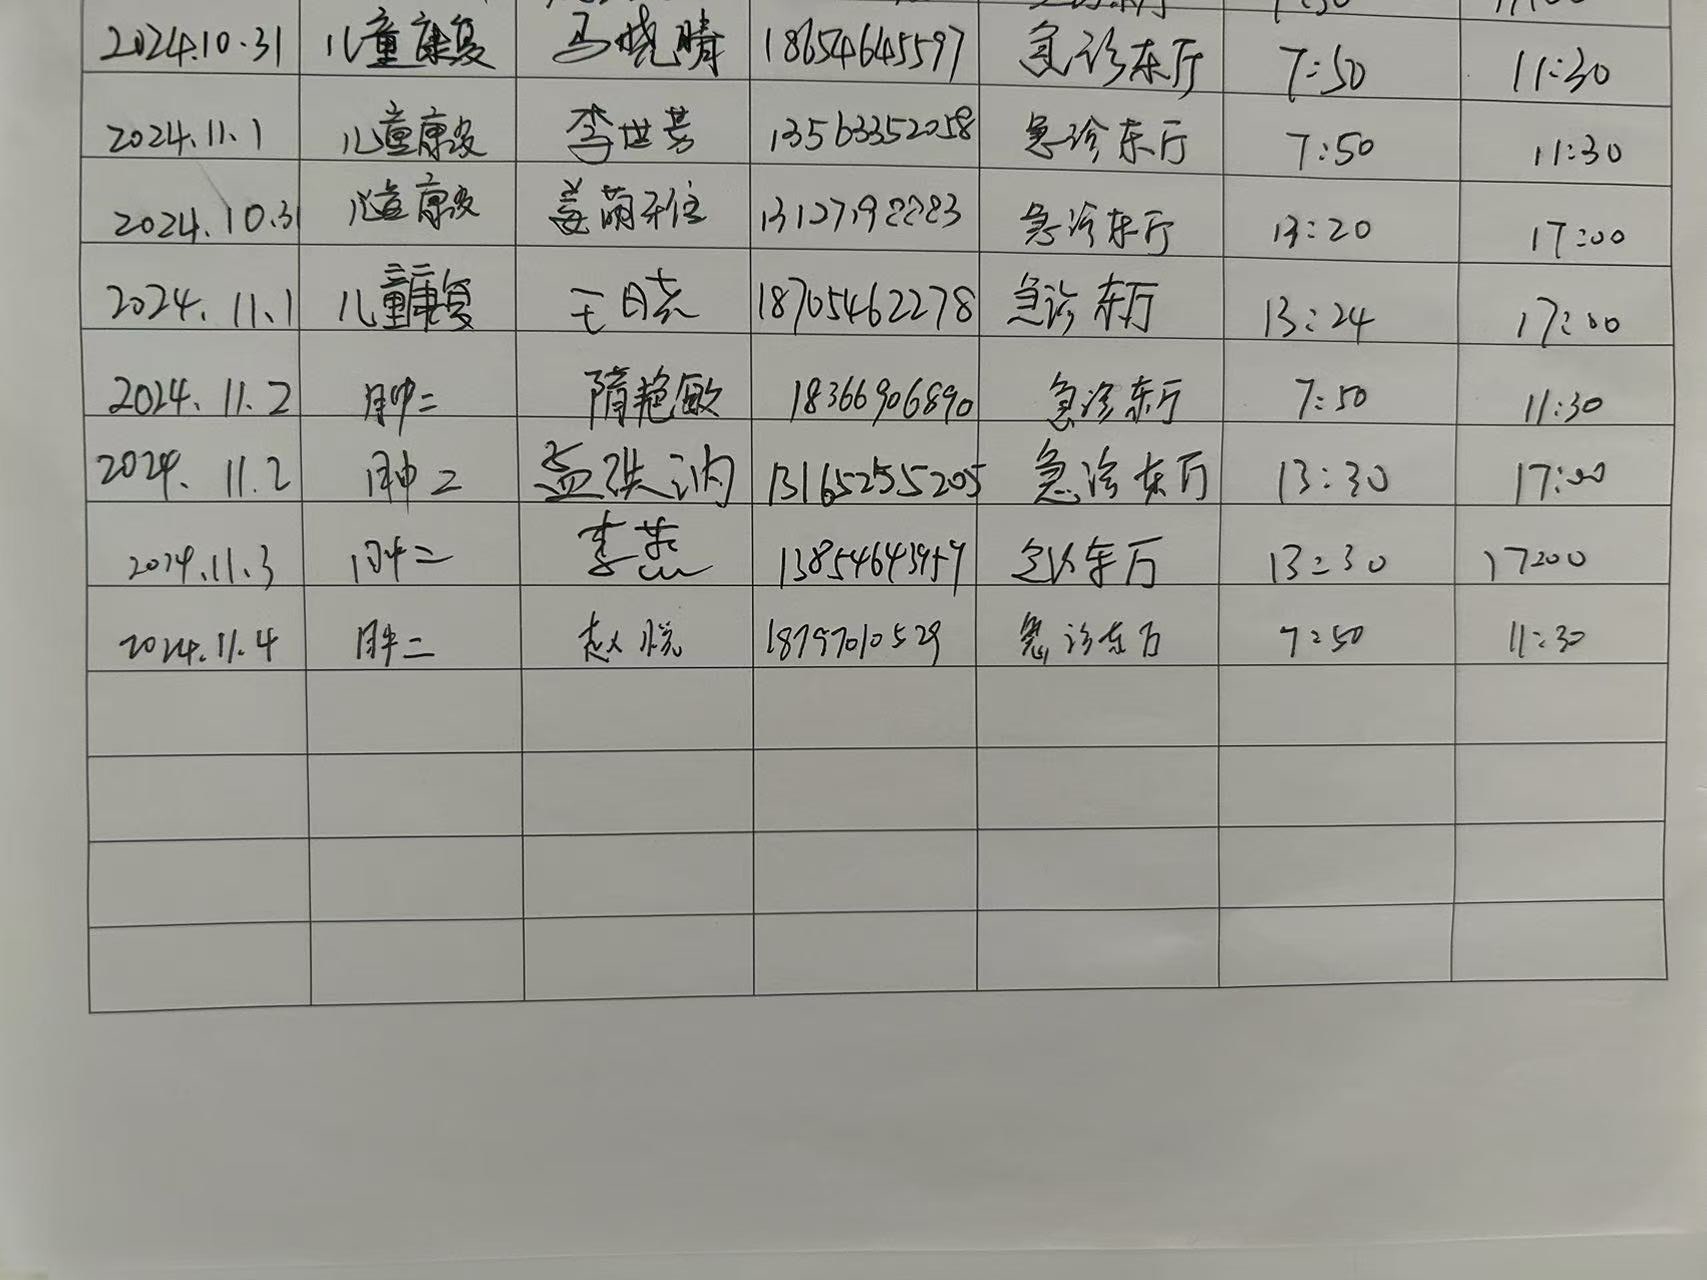 2024.10.31 儿童康复 马晓晴 18654645597 急诊东厅 7:50 11:30
2024.11.1 儿童康复 李世芳 13563352058 急诊东厅 7:50 11:30
2024.10.31 儿童康复 13127192223 急诊东厅 13:20 17:00
2024.11.1 儿童康复 王晓 18705462278 急诊东厅 13:24 17:00
2024.11.2 肿二 隋艳敏 18366906890 急诊东厅 7:50 11:30
2024.11.2 肿二 13165255205 急诊东厅 13:30 17:00
2024.11.3 肿二 李燕 急诊东厅 13:30 17:00
2024.11.4 肿二 赵悦 急诊东厅 7:50 11:30